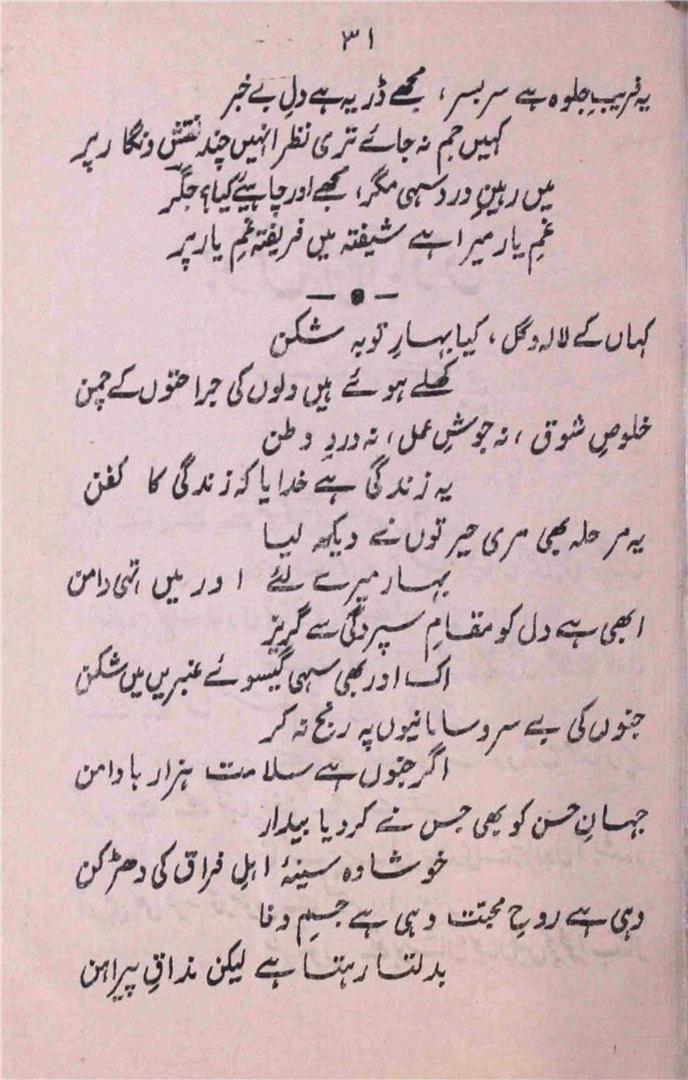 ۳۱
یہ فریبِ جلوہ ہے سربسر، مجھے ڈر یہ ہے دلِ بے خبر
کہیں جم نہ جائے تری نظر انہیں چند نقش و نگار پر
میں رہینِ درد سہی مگر، مجھے اور چاہیئے کیا؟ جگر
غمِ یار میرا ہے شیفتہ میں فریفتہ غمِ یار پر
کہاں کے لالہ و گل، کیا بہارِ توبہ شکن
کھلے ہوئے ہیں دلوں کی جراحتوں کے چمن
خلوصِ شوق، نہ جوشِ عمل، نہ دردِ وطن
یہ زندگی ہے خدایا کہ زندگی کا کفن
یہ مرحلہ بھی مری حیرتوں نے دیکھ لیا
بہار میرے لئے اور میں تہی دامن
ابھی ہے دل کو مقامِ سپردگی سے گریز
اک اور بھی سہی گیسوئے عنبریں میں شکن
جنوں کی بے سر و سامانیوں پہ رنج نہ کر
اگر جنوں ہے سلامت ہزارہا دامن
جہانِ حسن کو بھی جس نے کر دیا بیدار
خوشا وہ سینۂ اہلِ فراق کی دھڑکن
وہی ہے روحِ محبت وہی ہے جسمِ وفا
بدلتا رہتا ہے لیکن مذاقِ پیراہن